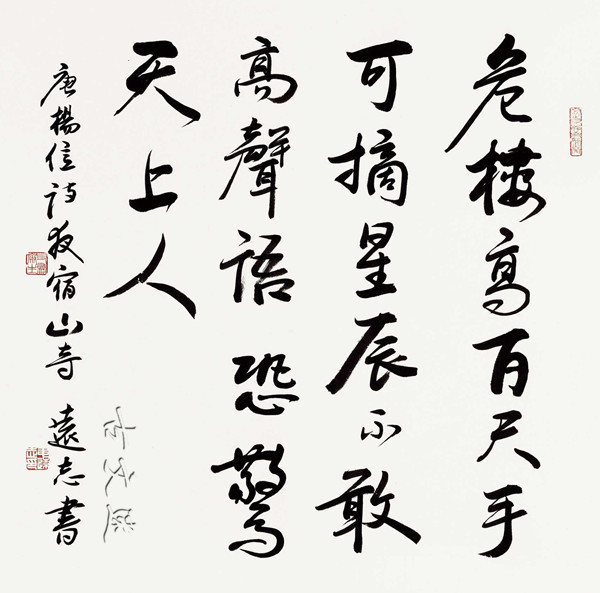 危樓高百尺手
可摘星辰不敢
高聲語恐驚
天上人
唐楊信詩夜宿山寺 遠志書